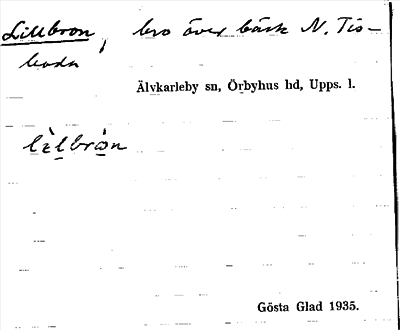 Lillbron, bro över bäck N. Tis-
bodn
Älvkarleby sn, Örbyhus hd, Upps. l.
lìlbròn
Gösta Glad 1935.